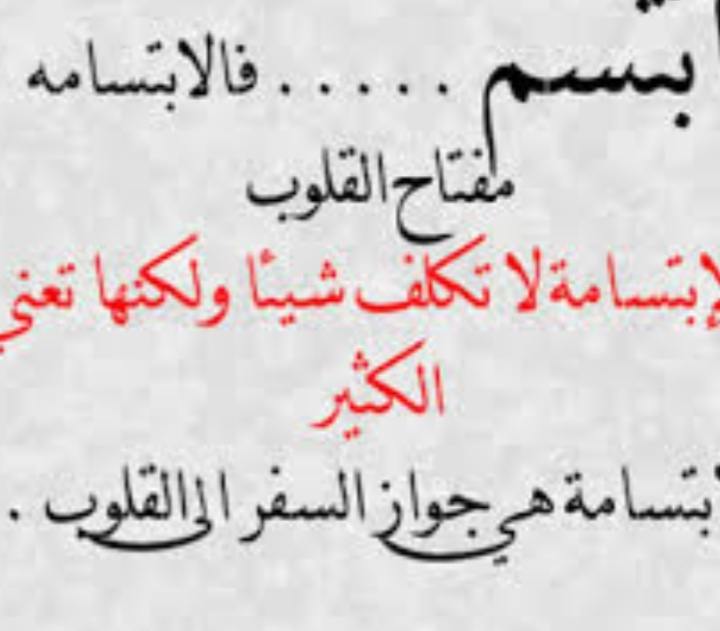 ابتسم ..... فالابتسامه
مفتاح القلوب
لإبتسامة لا تكلف شيئا ولكنها تعني
الكثير
أبتسامة هي جواز السفر الى القلوب .